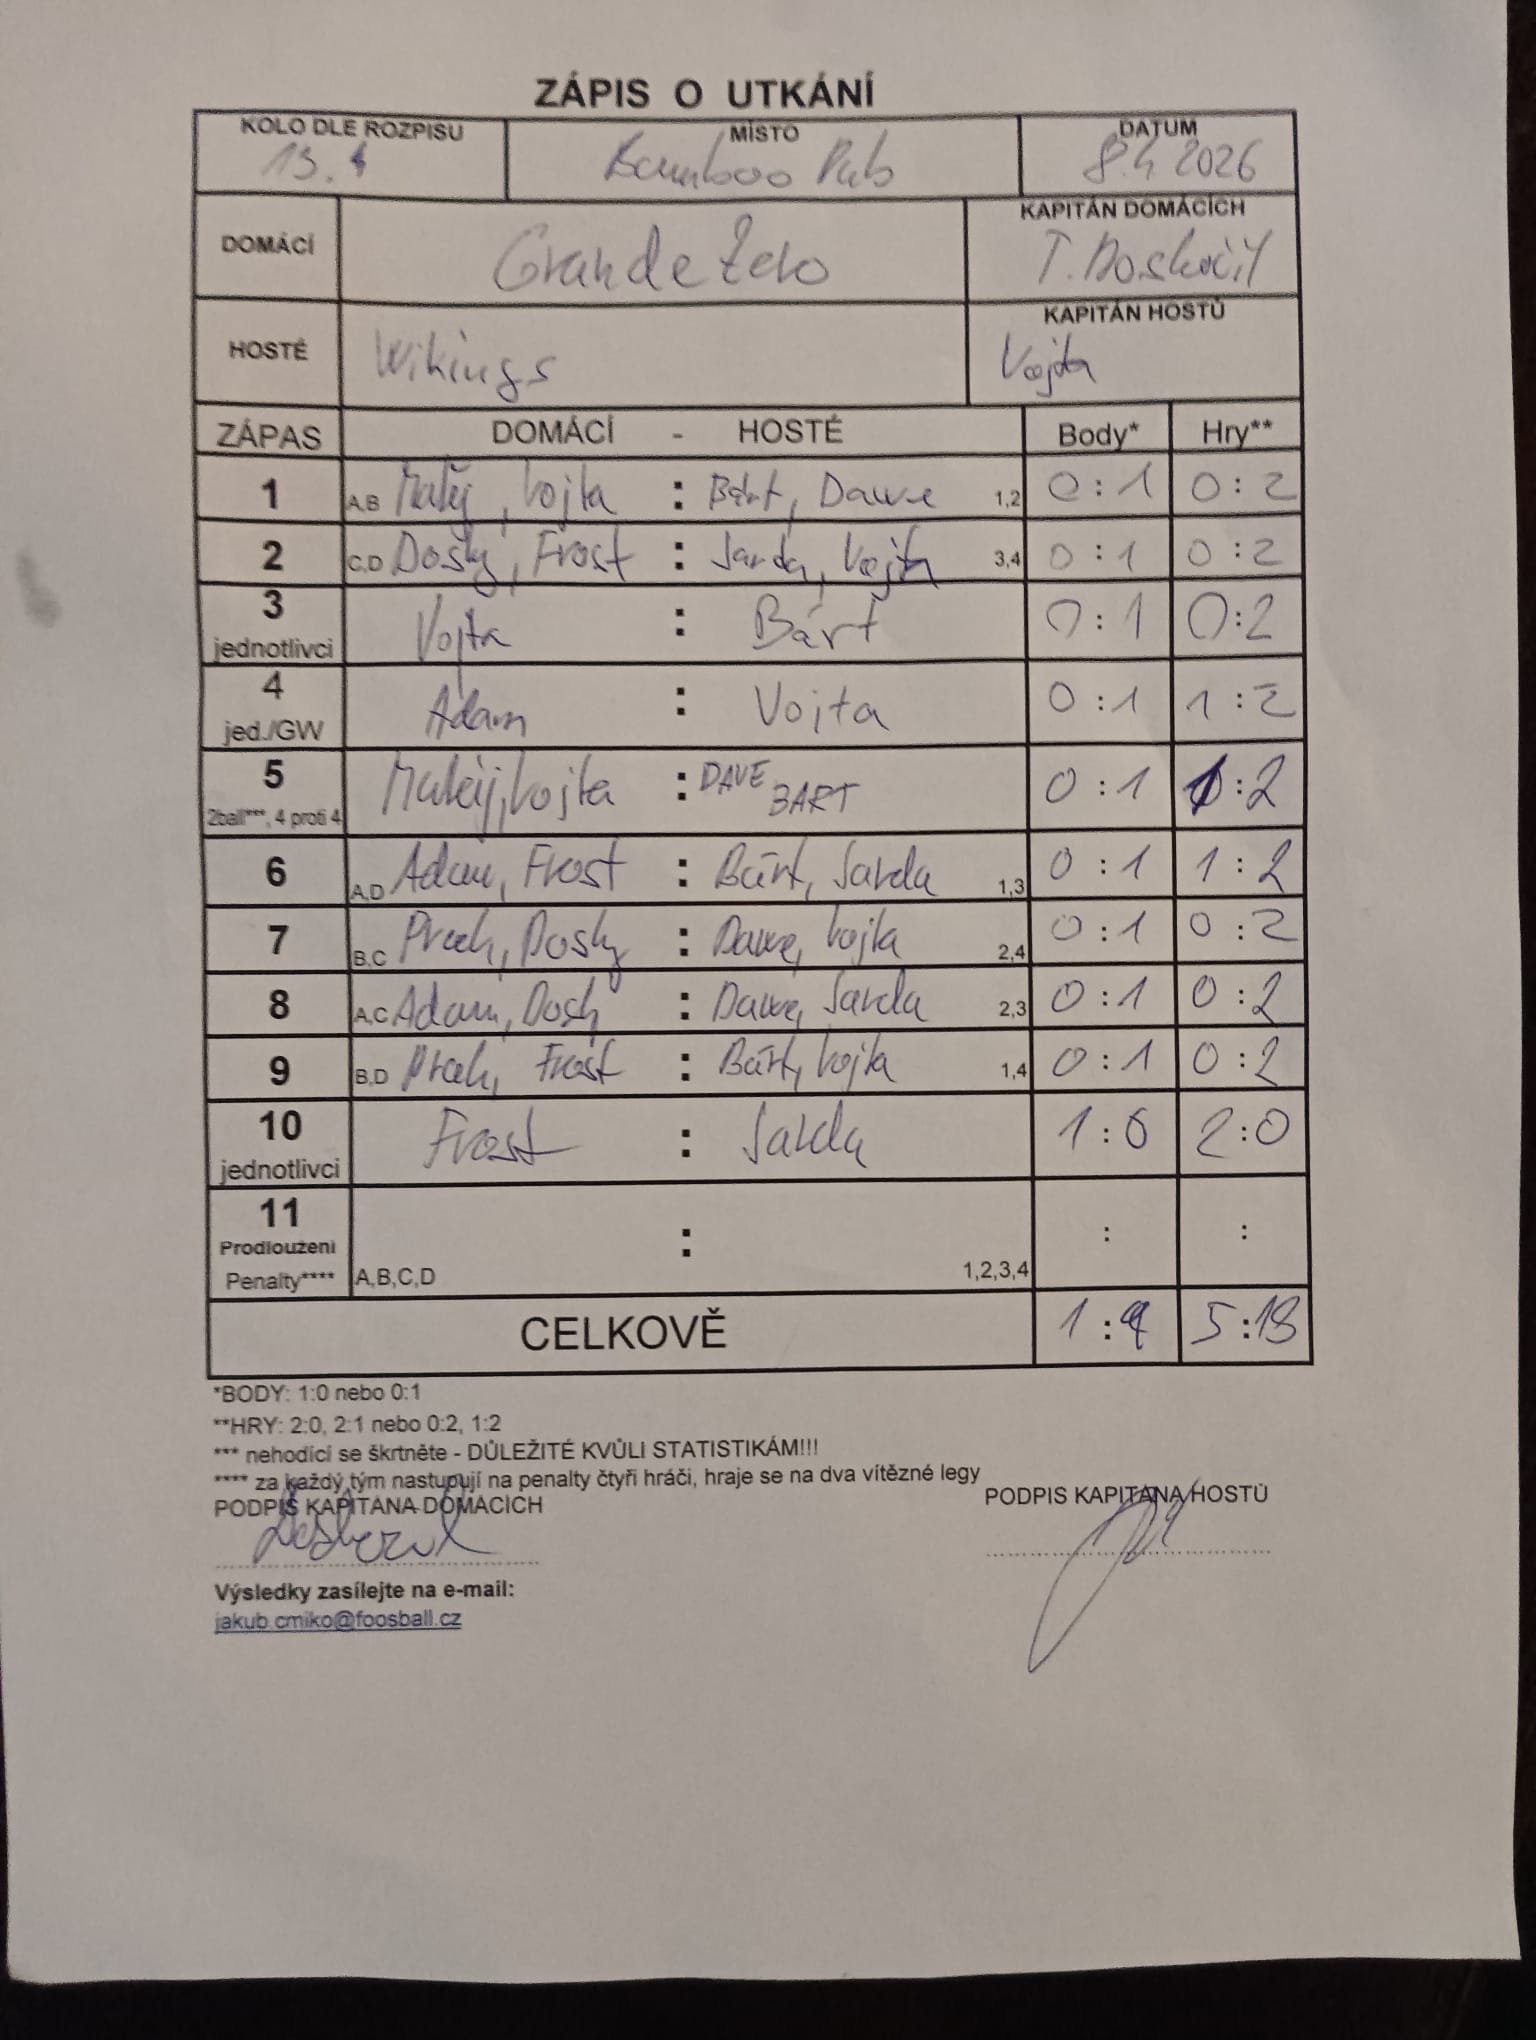 ZÁPIS O UTKÁNÍ
KOLO DLE ROZPISU MÍSTO DATUM
13. Bamboo Pub 8.4 2026
DOMÁCÍ Grande Zelo KAPITÁN DOMÁCÍCH T. Doskočil
HOSTÉ Wikings KAPITÁN HOSTŮ Vojta
ZÁPAS DOMÁCÍ - HOSTÉ Body* Hry**
1 A,B Matěj, Vojta : Bárt, Dawe 1,2 0:1 0:2
2 C,D Dosky, Frost : Jarda, Vojta 3,4 0:1 0:2
3 jednotlivci Vojta : Bárt 0:1 0:2
4 jed./GW Adam : Vojta 0:1 1:2
5 2ball***, 4 proti 4 Matěj, Vojta : DAVE BART 0:1 1:2
6 A,D Adam, Frost : Bárt, Jarda 1,3 0:1 1:2
7 B,C Prach, Dosky : Dawe, Vojta 2,4 0:1 0:2
8 A,C Adam, Dosky : Dawe, Jarda 2,3 0:1 0:2
9 B,D Prach, Frost : Bárt, Vojta 1,4 0:1 0:2
10 jednotlivci Frost : Jarda 1:0 2:0
11 Prodloužení Penalty**** A,B,C,D : 1,2,3,4 : :
CELKOVĚ 1:9 5:18
*BODY: 1:0 nebo 0:1
**HRY: 2:0, 2:1 nebo 0:2, 1:2
*** nehodící se škrtněte - DŮLEŽITÉ KVŮLI STATISTIKÁM!!!
**** za každý tým nastupují na penalty čtyři hráči, hraje se na dva vítězné legy
PODPIS KAPITÁNA DOMÁCÍCH PODPIS KAPITÁNA HOSTŮ
Výsledky zasílejte na e-mail:
jakub.cmiko@foosball.cz